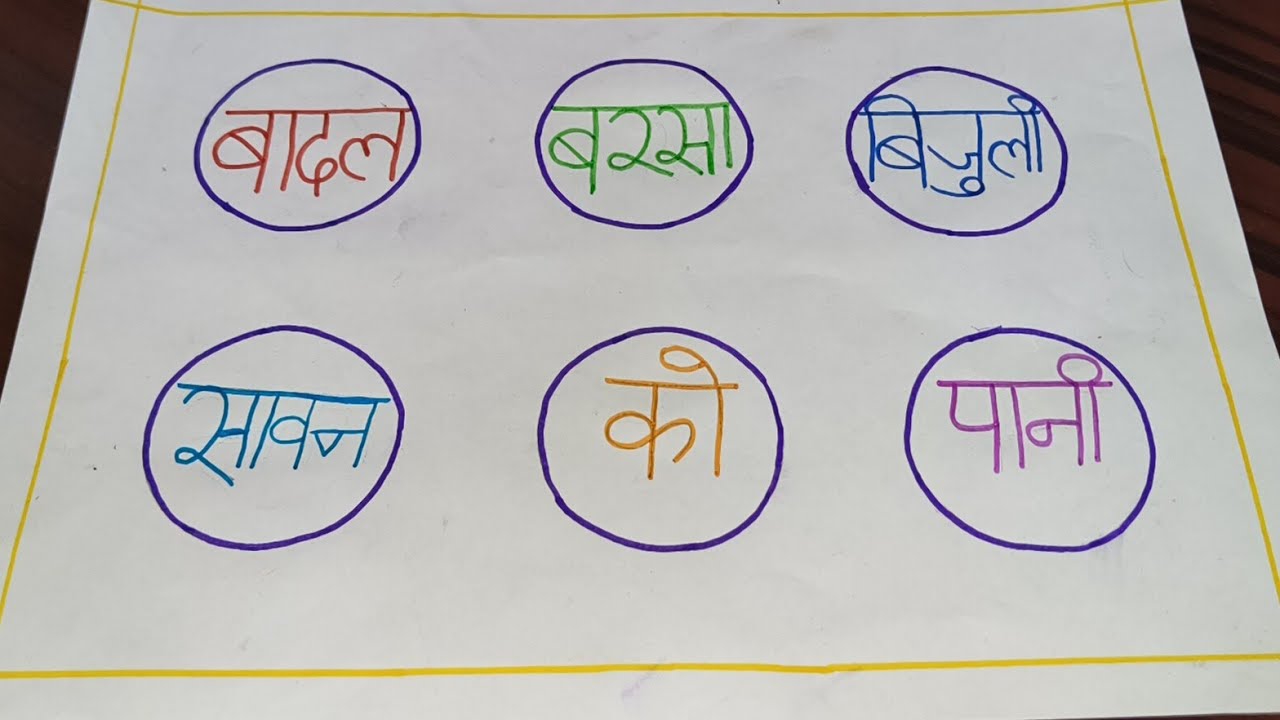 बादल बरसा बिजुली
सावन को पानी